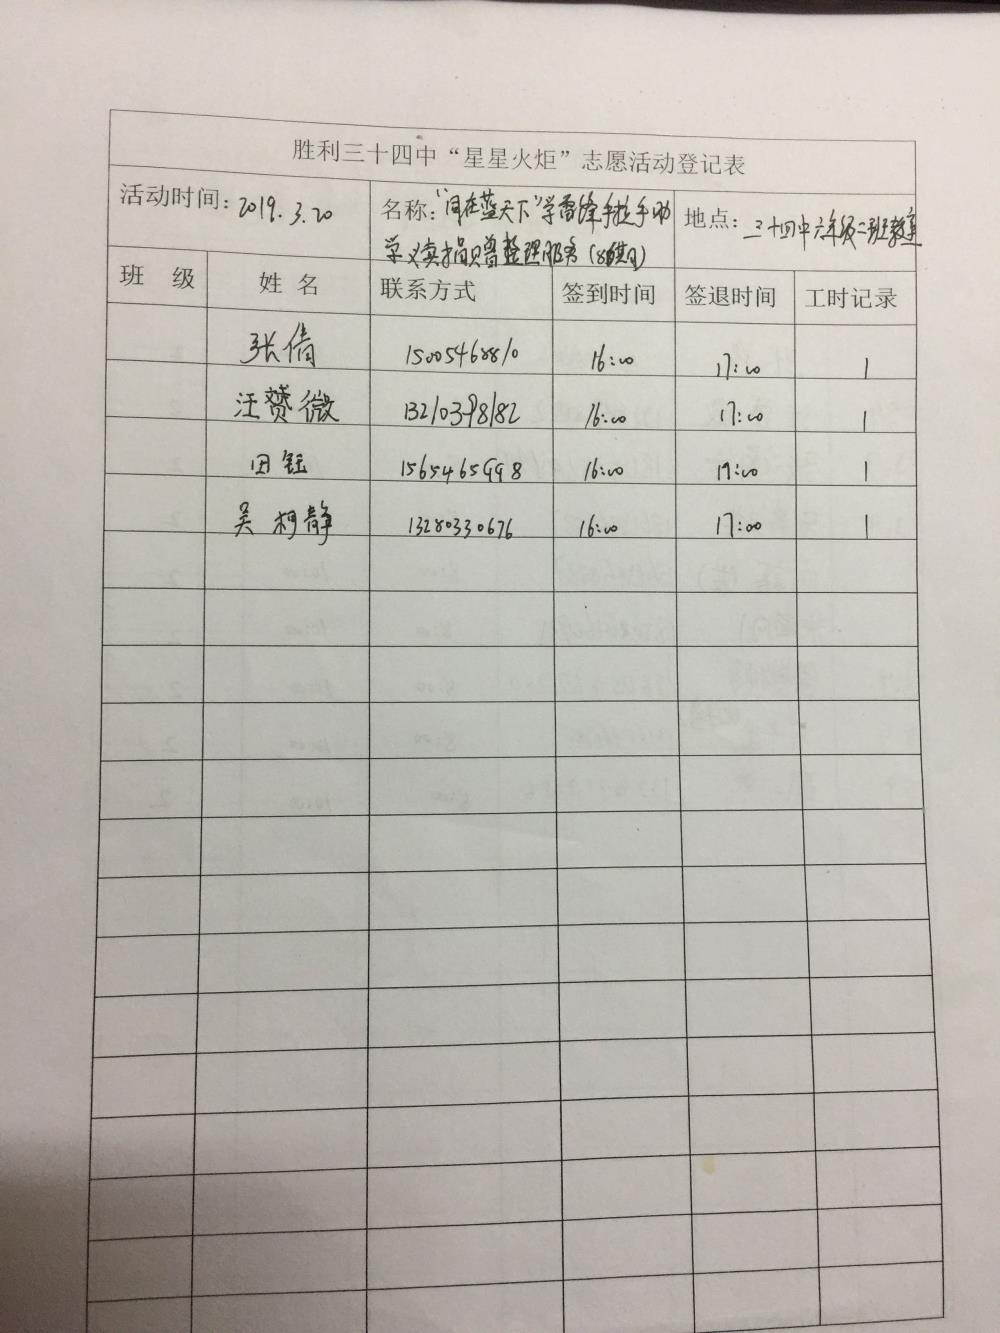 胜利三十四中“星星火炬”志愿活动登记表
活动时间：2019.3.20 名称：“同在蓝天下”学雷锋手拉手助 地点：三十四中六年级二班教室
学义卖捐赠整理服务
班 级 姓 名 联系方式 签到时间 签退时间 工时记录
张倩 15005468810 16:00 17:00 1
汪赟微 16:00 17:00 1
田钰 15654659998 16:00 17:00 1
吴柯静 13280330676 16:00 17:00 1